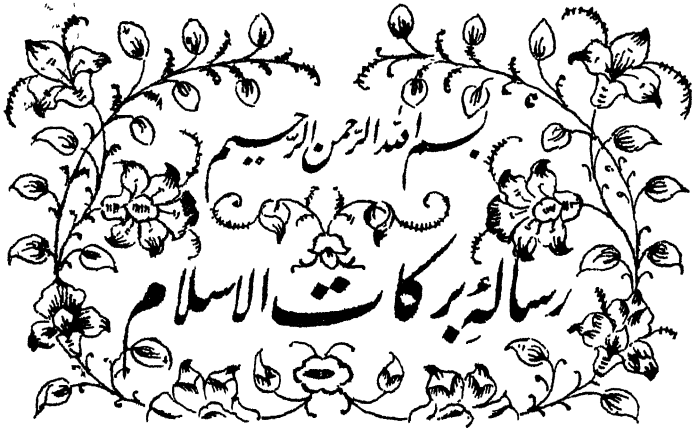 بسم الله الرحمن الرحیم
رسالۂ برکات الاسلام